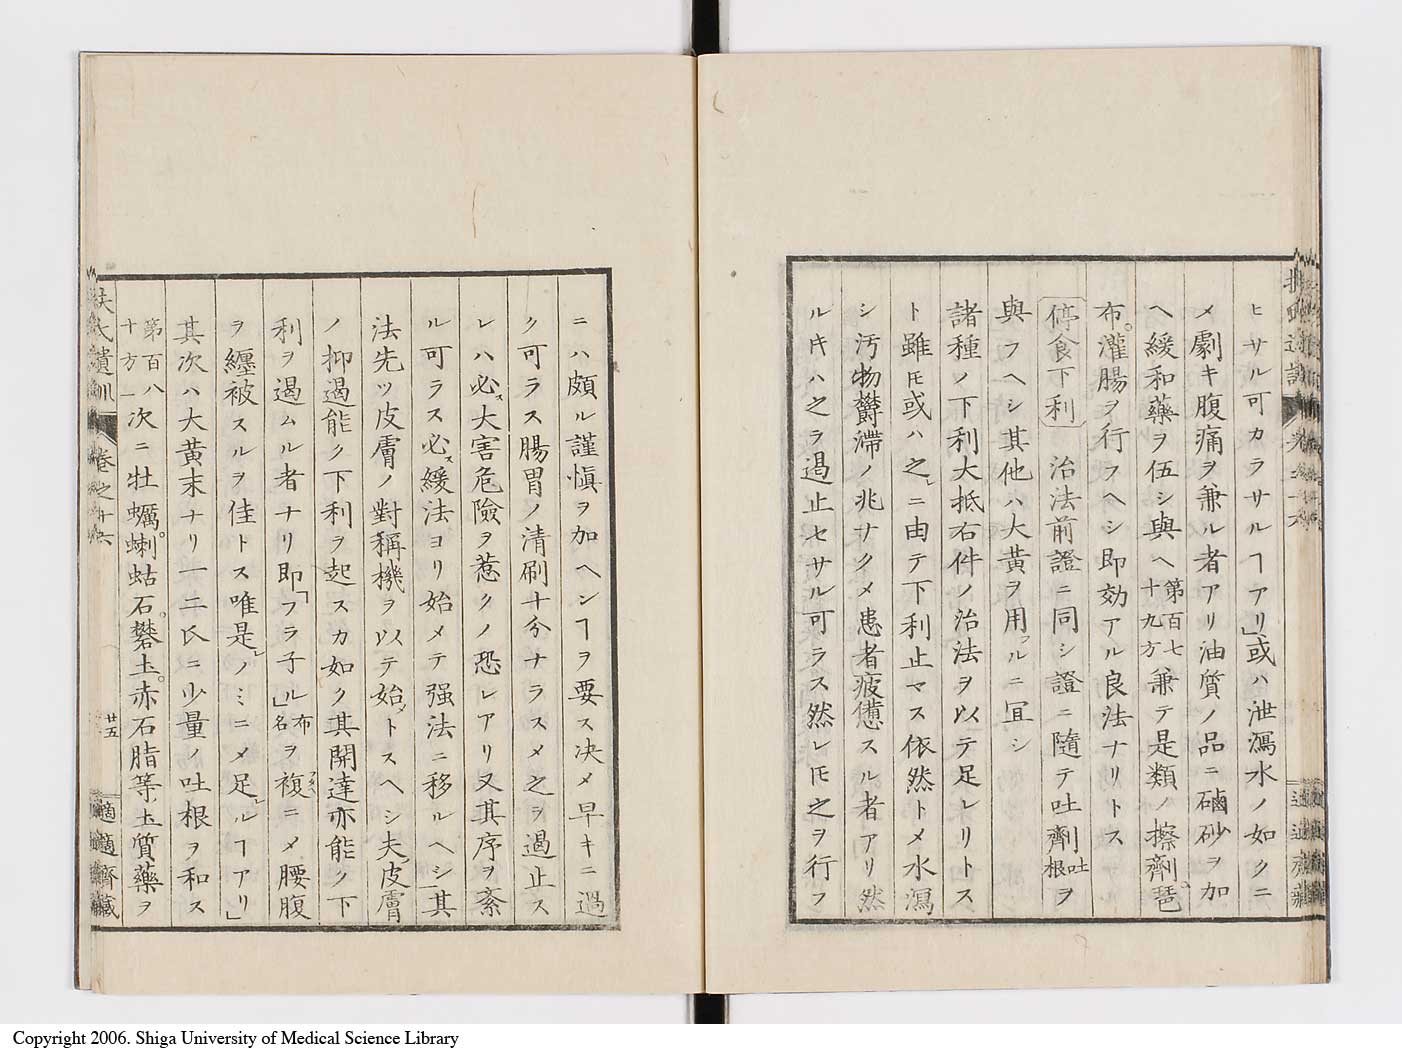 ヒサル可カラサルヿアリ」或ハ泄瀉水ノ如クニ
メ劇キ腹痛ヲ兼ル者アリ油質ノ品ニ磠砂ヲ加
ヘ緩和藥ヲ伍シ與ヘ第百七十九方兼テ是類ノ擦劑琶
布。灌腸ヲ行フヘシ即効アル良法ナリトス
停食下利 治法前證ニ同シ證ニ隨テ吐劑吐根ヲ
與フヘシ其他ハ大黃ヲ用フルニ冝シ
諸種ノ下利大抵右件ノ治法ヲ以テ足レリトス
ト雖モ或ハ之レニ由テ下利止マス依然トメ水瀉
シ汚物欝滯ノ兆ナクメ患者疲憊スル者アリ然
ルキハ之ヲ遏止セサル可ラス然レ𪜈之ヲ行フ
ニハ頗ル謹愼ヲ加ヘンヿヲ要ス决メ早キニ過
ク可ラス腸胃ノ清刷十分ナラスメ之ヲ遏止ス
レハ必ス大害危險ヲ惹クノ恐レアリ又其序ヲ紊
ル可ラス必ス緩法ヨリ始メテ强法ニ移ルヘシ其
法先ツ皮膚ノ對稱機ヲ以テ始トスヘシ夫皮膚
ノ抑遏能ク下利ヲ起スカ如ク其開達亦能ク下
利ヲ遏ムル者ナリ即「フラ子ル」布名ヲ複ニメ腰腹
ヲ纏被スルヲ佳トス唯是レノミニメ足レルヿアリ」
其次ハ大黃末ナリ一二氏ニ少量ノ吐根ヲ和ス
第百八十一方次ニ牡蠣。蝲蛄石。礬土。赤石脂等土質藥ヲ
扶氏遺訓 卷之十六 廿五 適適齊藏
Copyright 2006. Shiga University of Medical Science Library